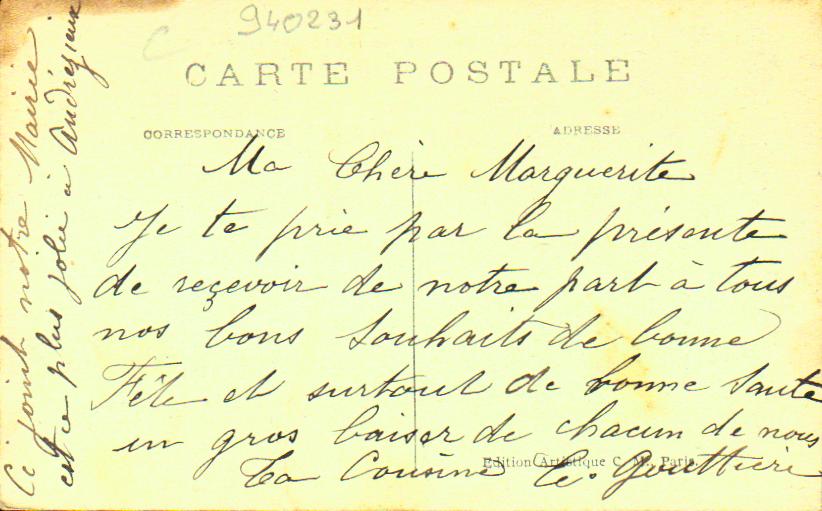 C 940231
CARTE POSTALE
CORRESPONDANCE
ADRESSE
Ma Chère Marguerite
Je te prie par la présente
de reçevoir de notre part à tous
nos bons souhaits de bonne
Fête et surtout de bonne Sante
un gros baiser de chacun de nous
Ta Cousine C. Gouttière
Edition Artistique C. M., Paris.
Ci joint notre Mairie
est ce plus jolie à Andrézieux